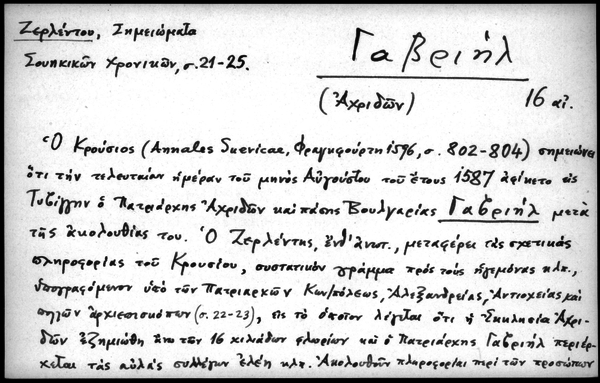 Ζερλέντου, Σημειώματα
Σουηκικῶν χρονικῶν, σ. 21-25.
Γαβριήλ
(Ἀχριδῶν) 16 αἰ.
Ὁ Κρούσιος (Annales Suevicae, Φραγκφούρτη 1596, σ. 802-804) σημειώνει
ὅτι τὴν τελευταίαν ἡμέραν τοῦ μηνὸς Αὐγούστου τοῦ ἔτους 1587 ἀφίκετο εἰς
Τυβίγγην ὁ Πατριάρχης Ἀχριδῶν καὶ πάσης Βουλγαρίας Γαβριήλ μετὰ
τῆς ἀκολουθίας του. Ὁ Ζερλέντης, ἔνθ' ἀνωτ., μεταφέρει τὰς σχετικὰς
πληροφορίας τοῦ Κρουσίου, συστατικὸν γράμμα πρὸς τοὺς ἡγεμόνας κλπ.,
ὑπογραφόμενον ὑπὸ τῶν Πατριαρχῶν Κων/πόλεως, Ἀλεξανδρείας, Ἀντιοχείας καὶ
πολλῶν ἀρχιεπισκόπων (σ. 22-23), εἰς τὸ ὁποῖον λέγεται ὅτι ἡ Ἐκκλησία Ἀχρι-
δῶν ἐζημιώθη ἄνω τῶν 16 χιλιάδων φλωρίων καὶ ὁ Πατριάρχης Γαβριὴλ περιέρ-
χεται τὰς αὐλὰς συλλέγων ἐλέη κλπ. Ἀκολουθοῦν πληροφορίαι περὶ τῶν προσώπων